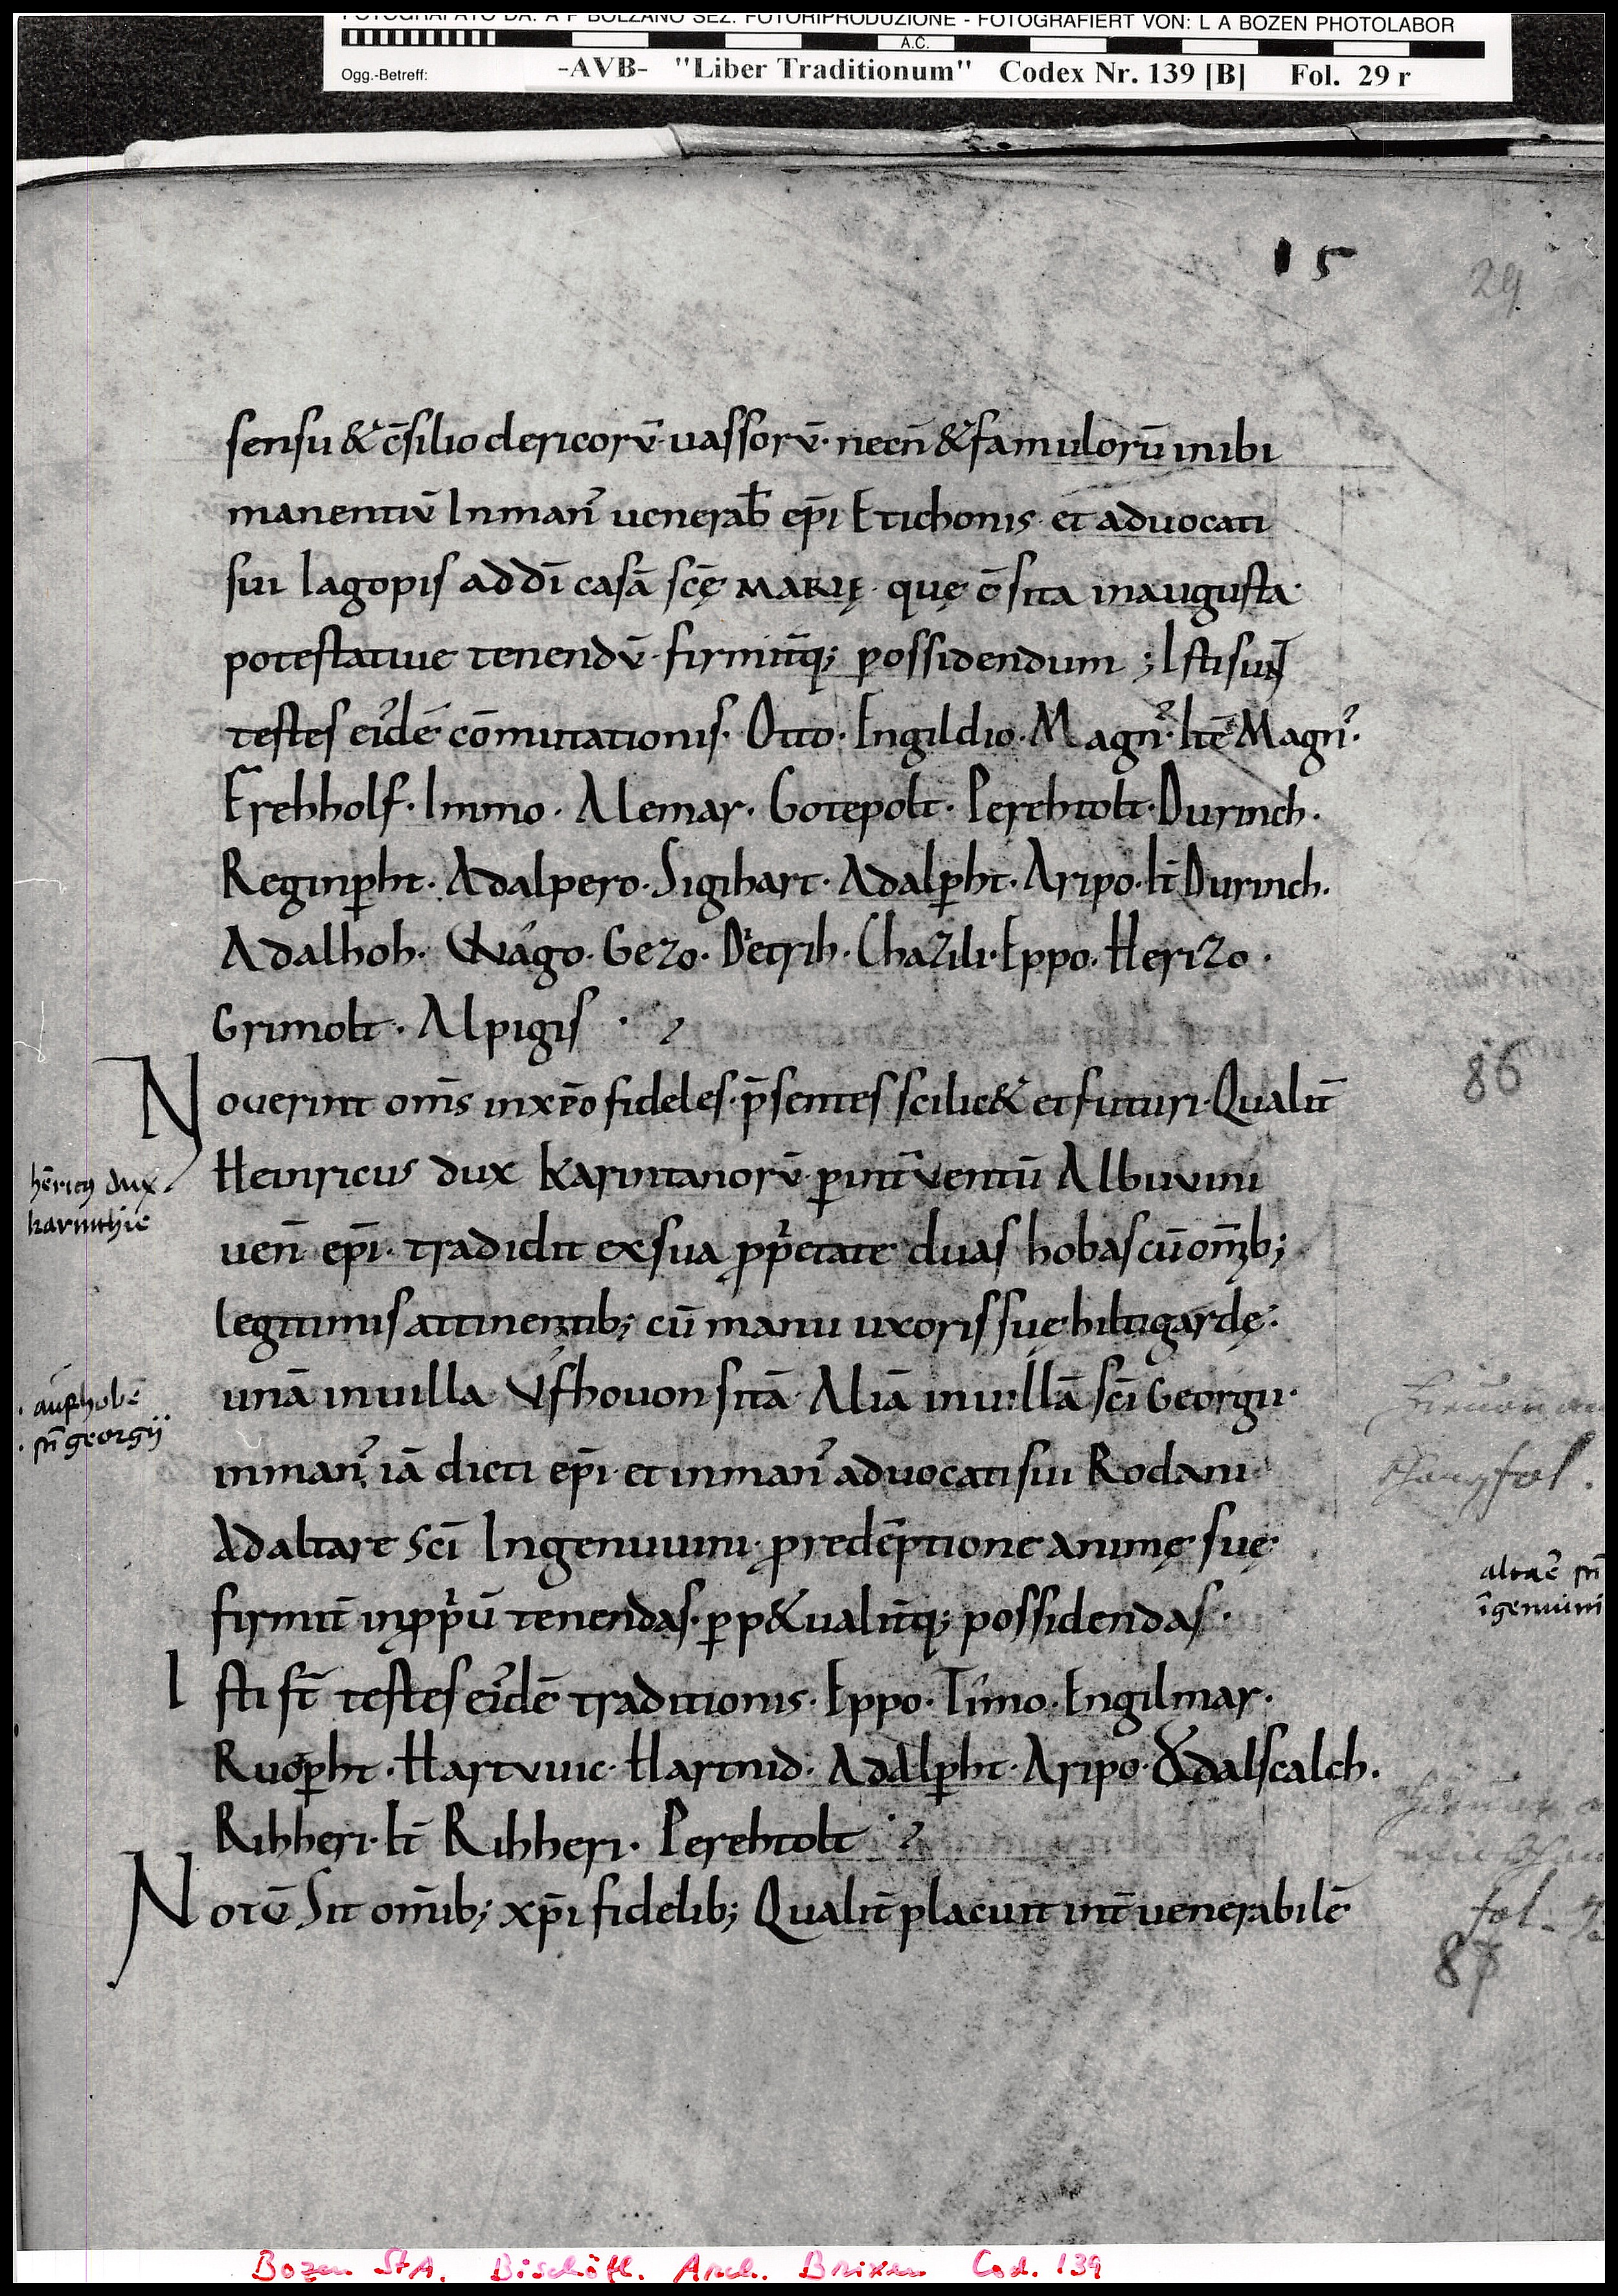 FOTOGRAFATO DA: A P BOLZANO SEZ. FOTORIPRODUZIONE - FOTOGRAFIERT VON: L A BOZEN PHOTOLABOR
A.C.
Ogg.-Betreff: -AVB- "Liber Traditionum" Codex Nr. 139 [B] Fol. 29 r
15
29
sensu & c̄silio clericorū uassorū· necn̄ & famulorū inibi
manentiū Inman᾿ uenerab̄ ep̄i Etichonis· et aduocati
sui lagopis ad dī casā scę̄ MARIĘ· quę ē sita inaugusta·
potestatiue tenendū· firmit̄q; possidendum ; Isti sunt
testes ei᾿dē cōmutationis· Otto· Engildio· Magn᾿· Itē Magn᾿·
Erehholf· Immo· Alemar· Gotepolt· Perehtolt· Durinch·
Reginp̱ht· Adalpero· Sigihart· Adalp̱ht· Aripo· It̄ Durinch·
Adalhoh· Wágo· Gezo· Dietrih· Chazili· Eppo· Herizo·
Grimolt· Alpigis ·
86
Nouerint om̄s inxp̄o fideles· p̄sentes scilic& et futuri· Qualit̄
Heinricus dux Karintanorū· p̱int̄uentū Albuuini
hēricꝰ dux
karinthie
uen̄ ep̄i· tradidit exsua p̱p̱ietate duas hobas cū om̄ib;
legitimis attinentib; cū manu uxoris suę hiltigardę·
unā inuilla Vfhouon sitā· Aliā inuillā scī Georgii·
aufhobē
sn̄ georgij
inman᾿ iā dicti ep̄i· et inman᾿ aduocati sui Rodani·
Adaltare Scī Ingenuuini· p̱redēptione animę suę·
altare sn̄
īgenuini
firmit̄ inp̱p̱iū tenendas· p̱p&ualit̄q; possidendas·
Isti st̄ testes ei᾿dē traditionis· Eppo· Timo· Engilmar·
Ruop̱ht· Hartvuic· Hartnid· Adalp̱ht· Aripo· Odalscalch·
Rihheri· It̄ Rihheri· Perehtolt
Notū Sit om̄ib; xp̄i fidelib; Qualit̄ placuit int̄ uenerabilē
fol.
87
Bozen StA. Bischöfl. Arch. Brixen Cod. 139